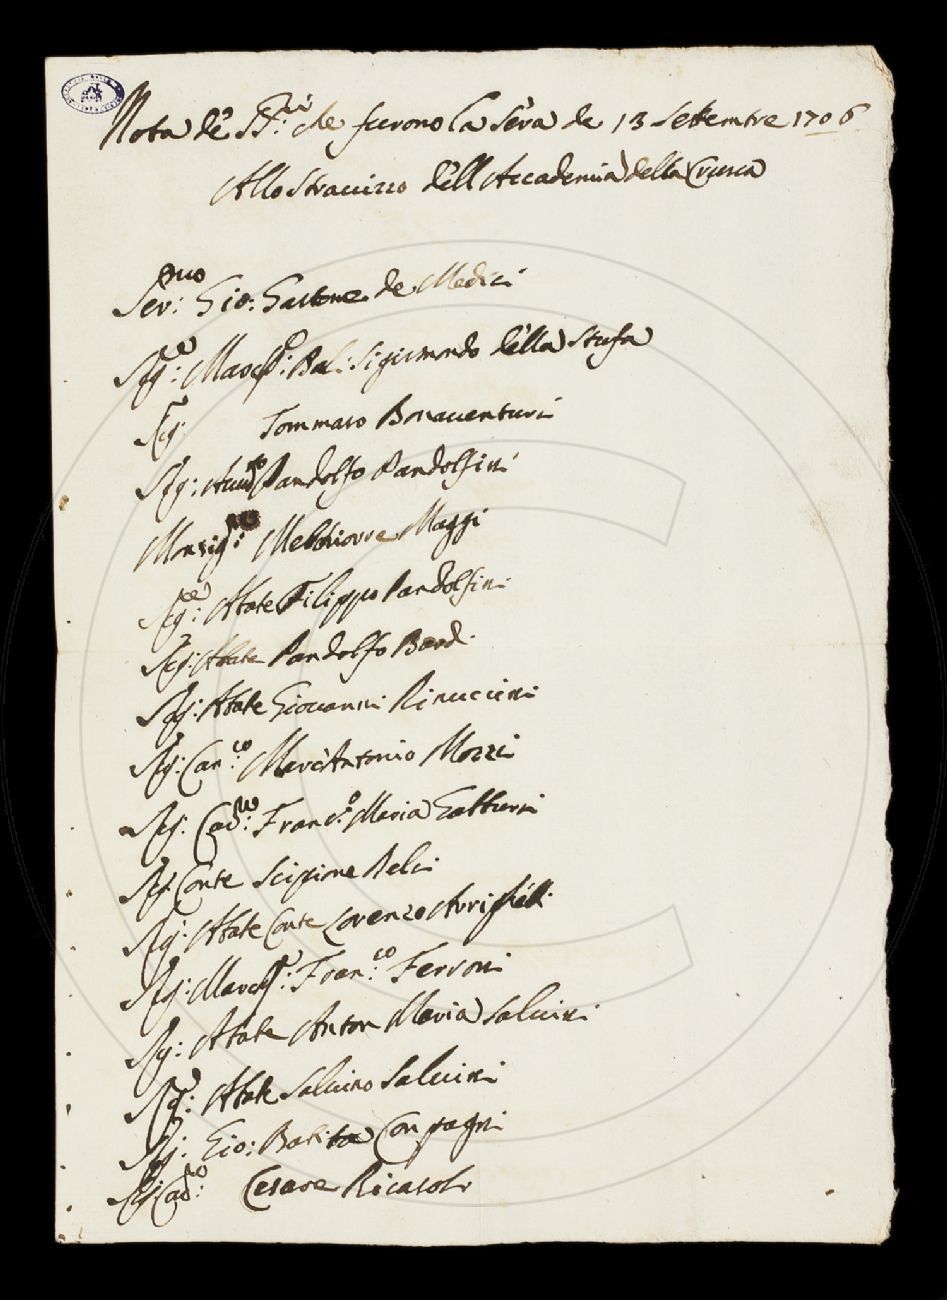 Nota de SS.ri che furono la sera de 13 Settembre 1706
Allo Stravizzo dell Accademia della Crusca
Ser:mo Gio: Gastone de Medici
Sig:re March:e Bali: Sigismondo della Stufa
Sig:r Tommaso Bonaventuri
Sig: Pandolfo Pandolfini
Monsig: Melchiorre Maggi
Sig:re Abate Filippo Pandolfini
Sig:r Abate Pandolfo Bard:
Sig: Abate Giovanni Rinuccini
Sig: Can:co Marc'Antonio Mozzi
Sig: Franc:o Maria Gabburri
Sig: Conte Scipione Belci
Sig: Abate Conte Lorenzo
Sig: March:e Fran:co Ferroni
Sig: Abate Anton Maria Salvini
Sig:r Abate Salvino Salvini
Sig: Gio: Batista Compagni
Sig: Cesare Ricasoli